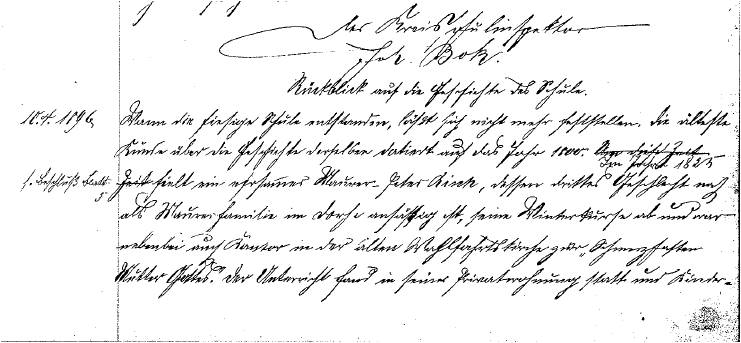 der Kreisschulinspektor
gez. Bock.
Rückblick auf die Geschichte der Schule.
10.4. 1896 Wann die hiesige Schule entstanden, läßt sich nicht mehr feststellen. Die älteste
Kunde über die Geschichte derselben datiert auf das Jahr 1800. Um diese Zeit
Im Jahre 1825
s. Beschluß Bl. 5 Zeit hielt ein ehrsamer Maurer Peter Rieck, dessen drittes Geschlecht noch
als Maurerfamilie im Dorfe ansässig ist, seine Winterkurse ab und war
nebenbei auch Kantor in der alten Wallfahrtskirche zur „Schmerzhaften
Mutter Gottes." Der Unterricht fand in seiner Privatwohnung statt und Kinder-